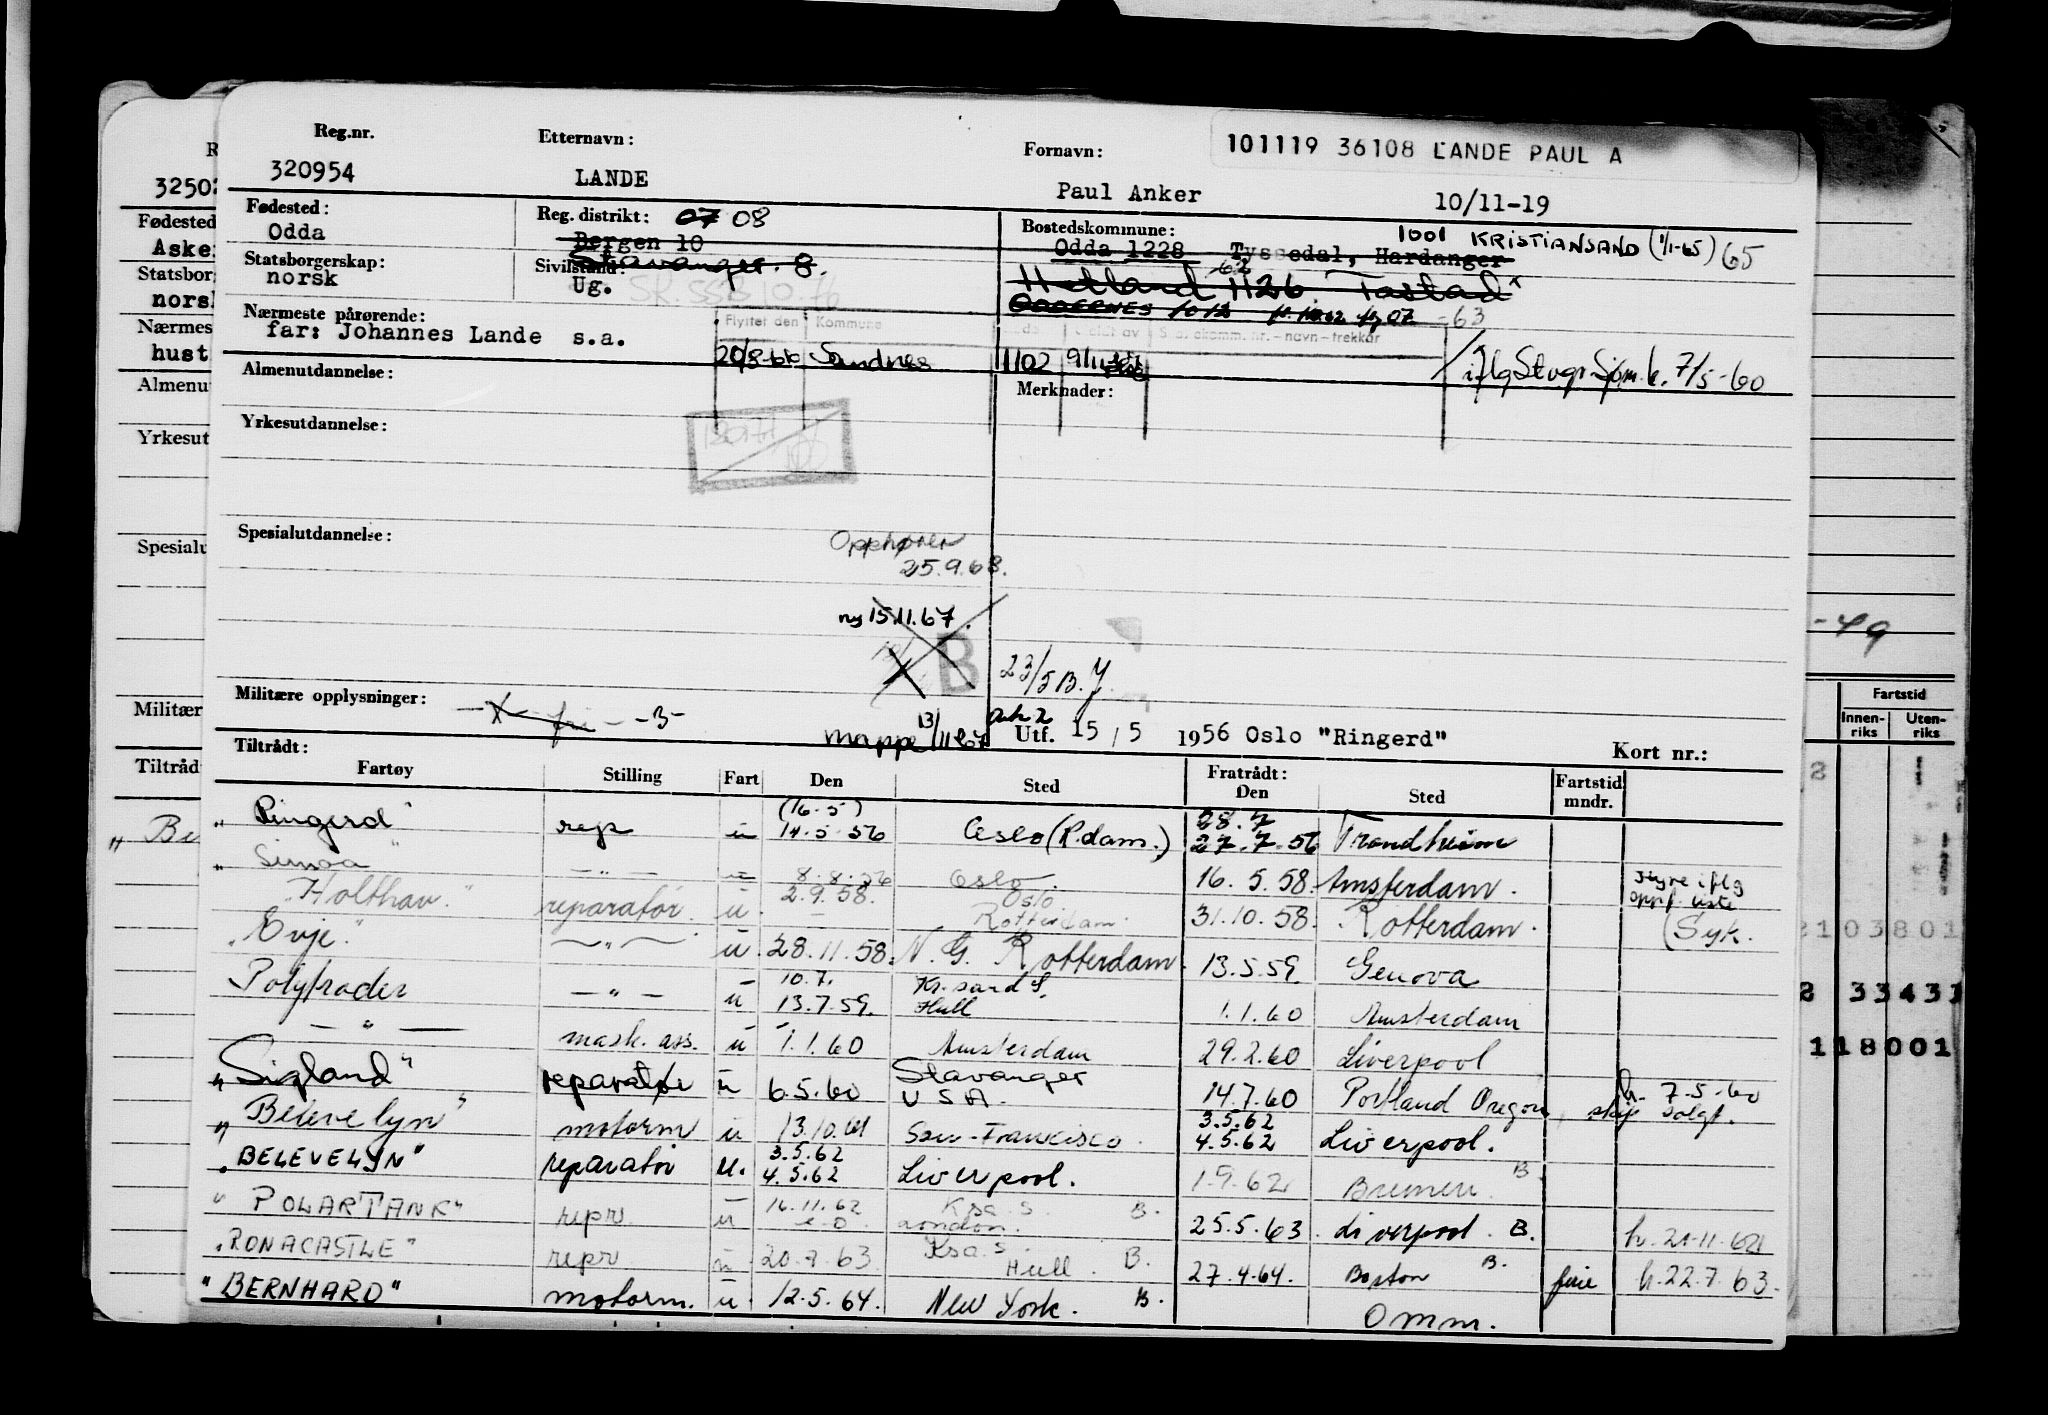 Reg.nr. Etternavn: Fornavn: 101119 36108 LANDE PAUL A
320954 LANDE Paul Anker 10/11-19
Fødested: Reg. distrikt: 07 08 Bostedskommune: 1001 KRISTIANSAND (1/1-65) 65
Odda Bergen 10 Odda 1228 Tyssedal, Hardanger
Statsborgerskap: Sivilstand: Stavanger. 8.
norsk Ug. Hetland 1126 Tastad
Nærmeste pårørende: ODDERNES 1012 -63
far: Johannes Lande s.a. Flyttet den Kommune
20/8-66 Sandnes 1102
iflg Stvgr. Sjøm.k. 7/5-60
Almenutdannelse: Merknader:
Yrkesutdannelse:
Spesialutdannelse: Opphører
25.9.68.
ny 15.11.67.
B 23/5 B.J.
Militære opplysninger: fri -3-
mappe 13/11-67 Utf. 15/5 1956 Oslo "Ringerd"
Tiltrådt: Kort nr.:
Fartøy Stilling Fart Den Sted Fratrådt: Den Sted Fartstid mndr.
"Ringerd" rep u (16.5) 14.5.56 Oslo (R.dam.) 28.7 27.7.56 Trondheim
"Simoa" -"- u 8.8.56 Oslo. 16.5.58 Amsterdam. Hyre iflg oppg. liste
"Holthav" reparatør u. 2.9.58. Oslo. Rotterdam. 31.10.58. Rotterdam. (Syk.
"Evje" -"- u. 28.11.58. N.G. Rotterdam. 13.5.59. Genova
Polytrader -"- u 10.7. 13.7.59. Kr.sand S. Hull 1.1.60 Amsterdam
-"- mask. ass. u 1.1.60 Amsterdam 29.2.60 Liverpool
"Sigland" reparatør u 6.5.60 Stavanger USA. 14.7.60 Portland Oregon, skip solgt. h. 7.5.60
"Belevelyn" motorm u 13.10.61 San-Francisco. 3.5.62 4.5.62 Liverpool.
"BELEVELYN" reparatør u. 3.5.62 4.5.62 Liverpool. 1.9.62 Bremen. B
"POLARTANK" repr. u 16.11.62 Ksa. S London. B. 25.5.63. Liverpool. B. h. 21.11.62
"RONACASTLE" repr u 20.7.63. Ksa.S. Hull. B. 27.4.64. Boston B. ferie h.22.7.63.
"BERNHARD" motorm. u 12.5.64. New York. B. Omm.
32502
Fødested
Aske
Statsbor
nors
Nærmes
hust
Almenu
Yrkesut
Spesialu
Militær
Tiltråd
" Be
-49
Fartstid
Innen-riks Uten-riks
2 1
21 03801
2 33431
118001